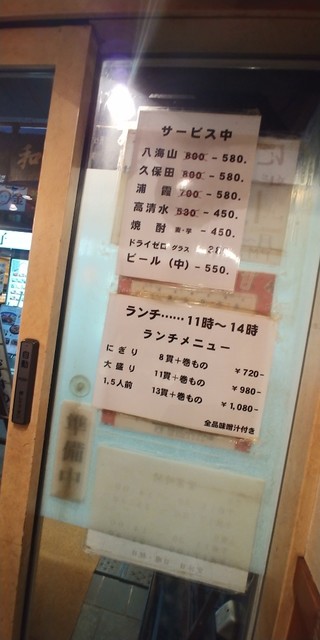 サービス中
八海山 800 - 580.
久保田 800 - 580.
浦霞 700 - 580.
高清水 530 - 450.
焼酎 麦・芋 - 450.
ドライゼロ グラス
ビール (中) - 550.
ランチ……11時〜14時
ランチメニュー
にぎり 8貫+巻もの ¥720-
大盛り 11貫+巻もの ¥980-
1.5人前 13貫+巻もの ¥1,080-
全品味噌汁付き
準備中
和